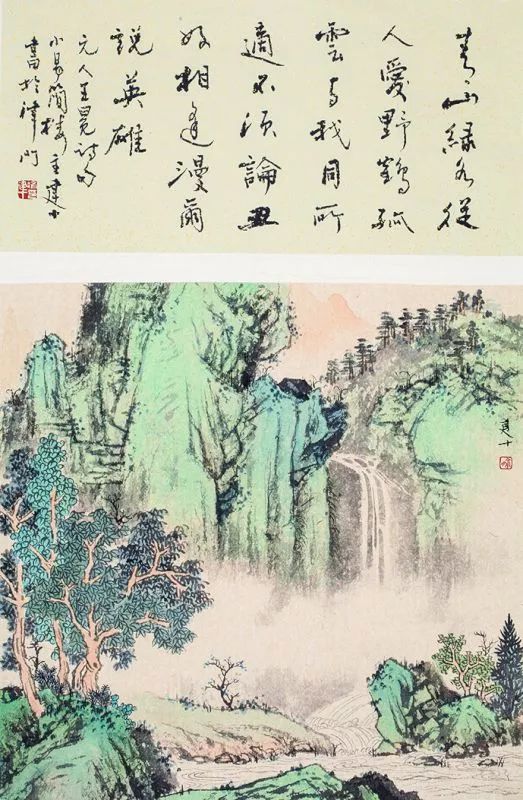 青山緑水從
人愛野鶴孤
雲与我同所
適不須論丑
好相逢漫爾
說英雄
元人王冕詩句
小易簡樓主建十
書於津門
建十